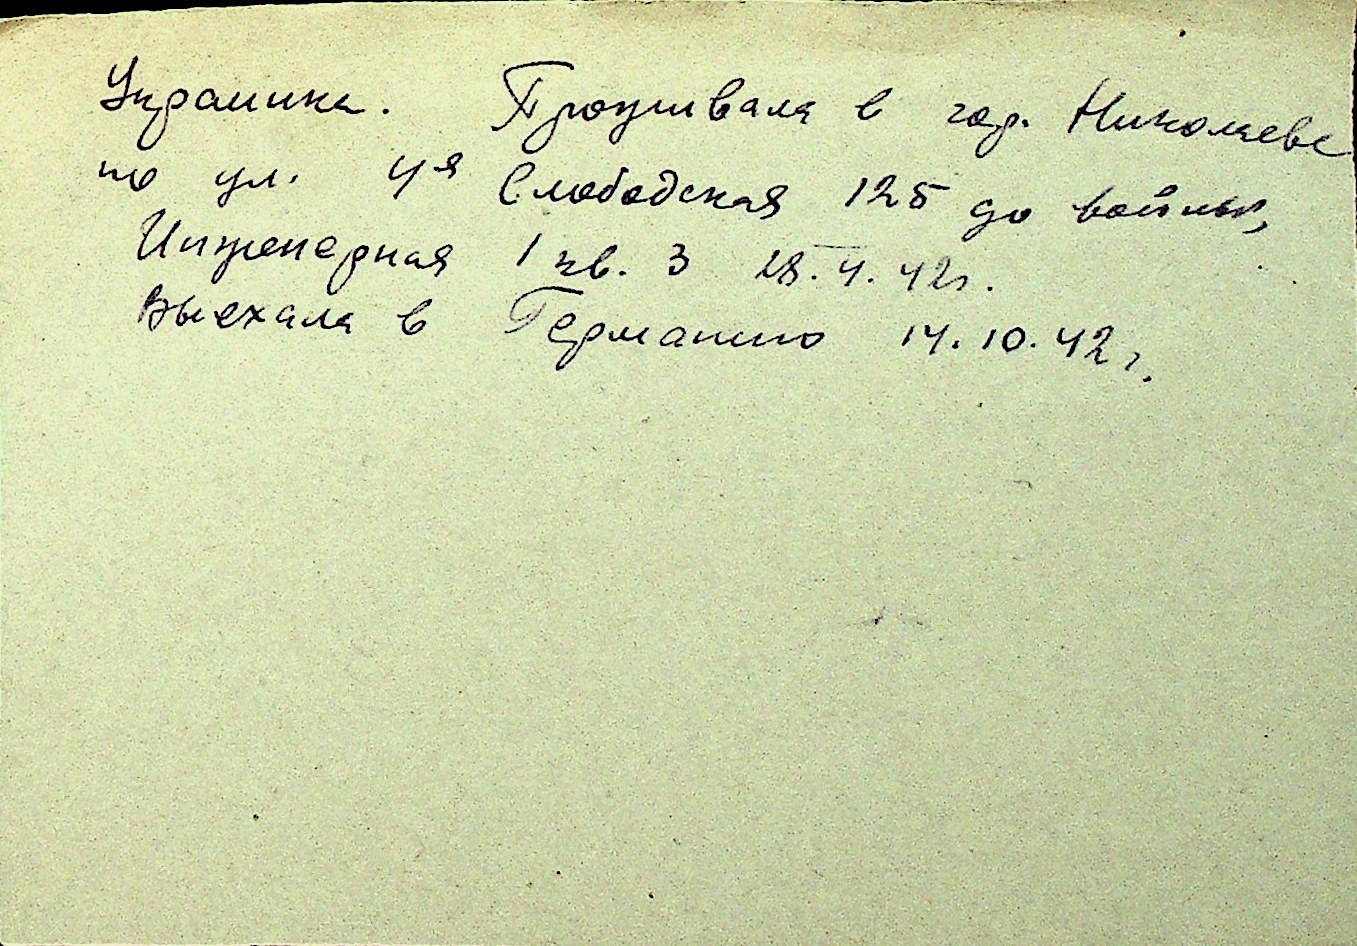 Украинка. Проживала в гор. Николаеве
по ул. 4я Слободская 125 до войны,
Инженерная 1 кв. 3 28.4.42г.
Выехала в Германию 14.10.42г.